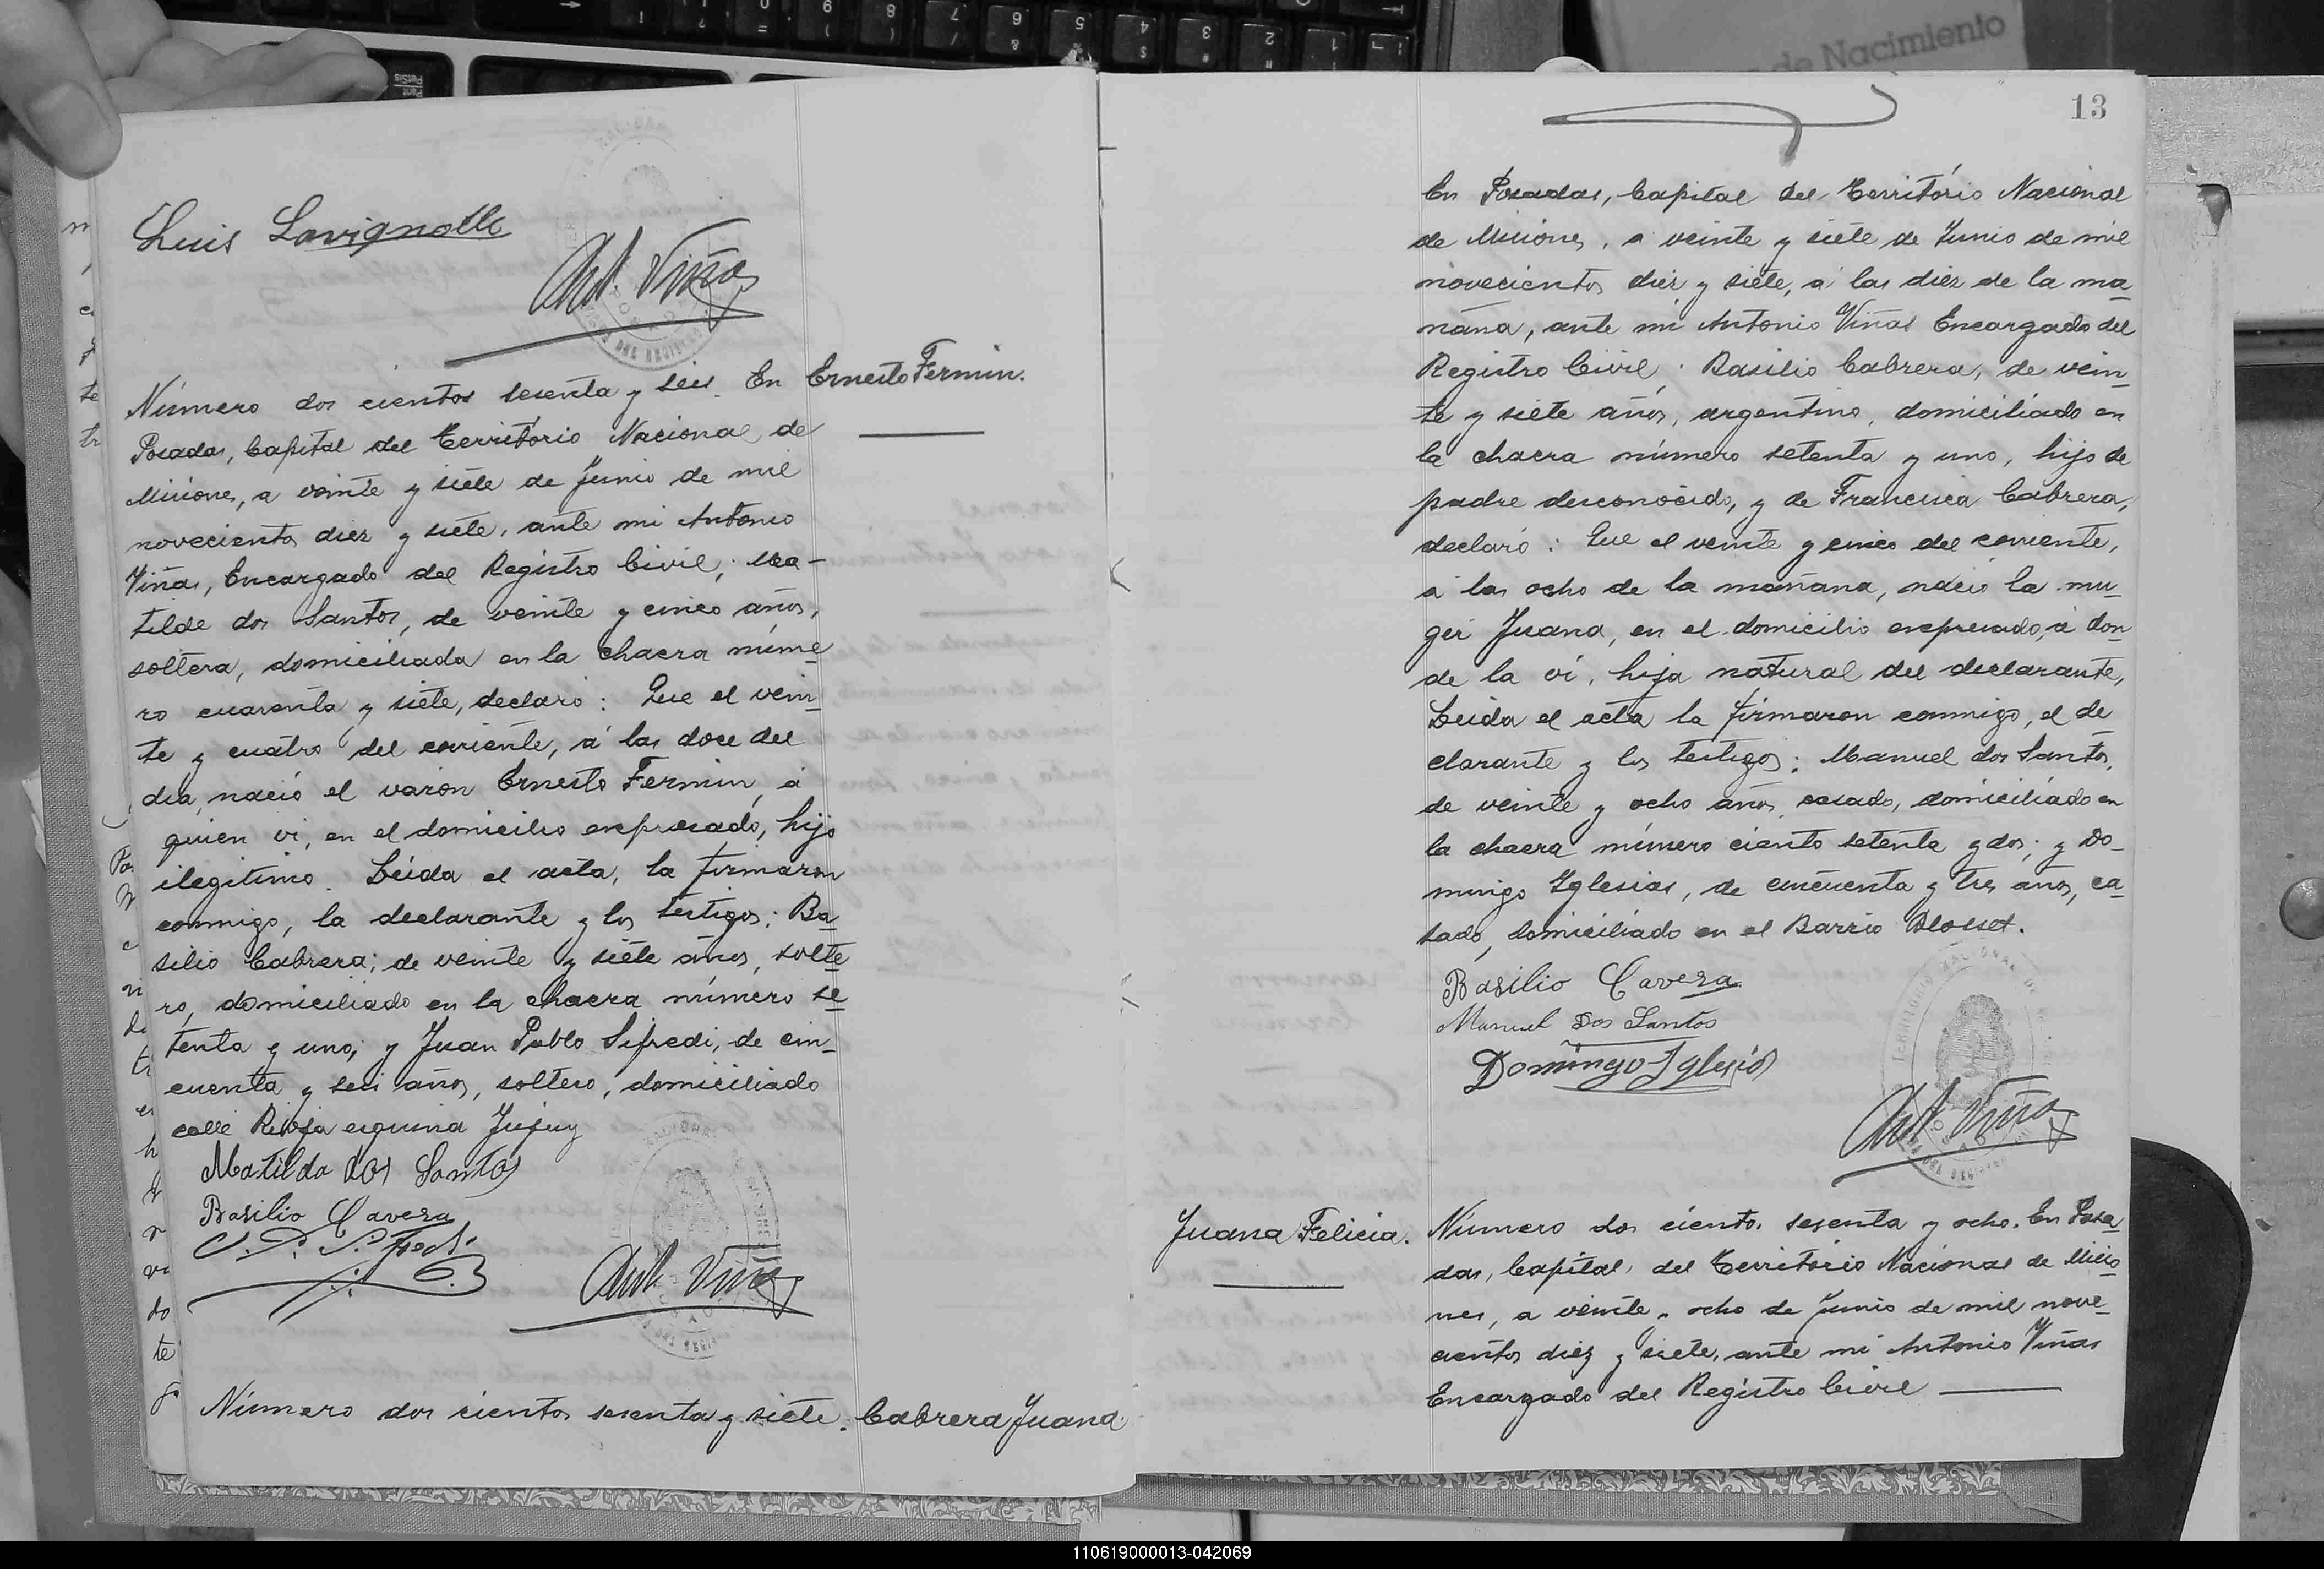 Luis Lavignolle
Ant. Viñas
Número dos cientos sesenta y seis. En
Ernesto Fermin.
Posadas, Capital del Territorio Nacional de
Misiones, a veinte y siete de Junio de mil
novecientos diez y siete, ante mi Antonio
Viñas, Encargado del Registro Civil; Ma-
tilde dos Santos, de veinte y cinco años,
soltera, domiciliada en la chacra núme
ro cuarenta y siete, declaró: Que el vein
te y cuatro del corriente, á las doce del
dia, nació el varon Ernesto Fermin, á
quien vi, en el domicilio expresado, hijo
ilegitimo. Leida el acta, la firmaron
conmigo, la declarante y los testigos: Ba
silio Cabrera; de veinte y siete años, solte
ro, domiciliado en la chacra número se
tenta y uno; y Juan Pablo Sifredi, de cin
cuenta y seis años, soltero, domiciliado
calle Rioja esquina Jujuy
Matilda dos Santos
Basilio Cavera
Ant. Viñas
Número dos cientos sesenta y siete.
Cabrera Juana.
de Nacimiento
13
En Posadas, Capital del Territorio Nacional
de Misiones, a veinte y siete de Junio de mil
novecientos diez y siete, á las diez de la ma
ñana, ante mi Antonio Viñas Encargado del
Registro Civil; Basilio Cabrera, de vein
te y siete años, argentino, domiciliado en
la chacra número setenta y uno, hijo de
padre desconocido, y de Francisca Cabrera,
declaró: Que el veinte y cinco del corriente,
á las ocho de la mañana, nació la mu
ger Juana, en el domicilio expresado, á don
de la vi, hija natural del declarante,
Leida el acta la firmaron conmigo, el de
clarante y los testigos: Manuel dos Santos,
de veinte y ocho años, casado, domiciliado en
la chacra número ciento setenta y dos; y Do
mingo Yglesias, de cincuenta y tres años, ca
sado, domiciliado en el Barrio Blosset.
Basilio Cavera
Manuel Dos Santos
Domingo Iglesias
Ant. Viñas
Juana Felicia.
Número dos cientos sesenta y ocho. En Posa
das, Capital del Territorio Nacional de Misio
nes, a veinte y ocho de Junio de mil nove
cientos diez y siete, ante mi Antonio Viñas
Encargado del Registro Civil
110619000013-042069